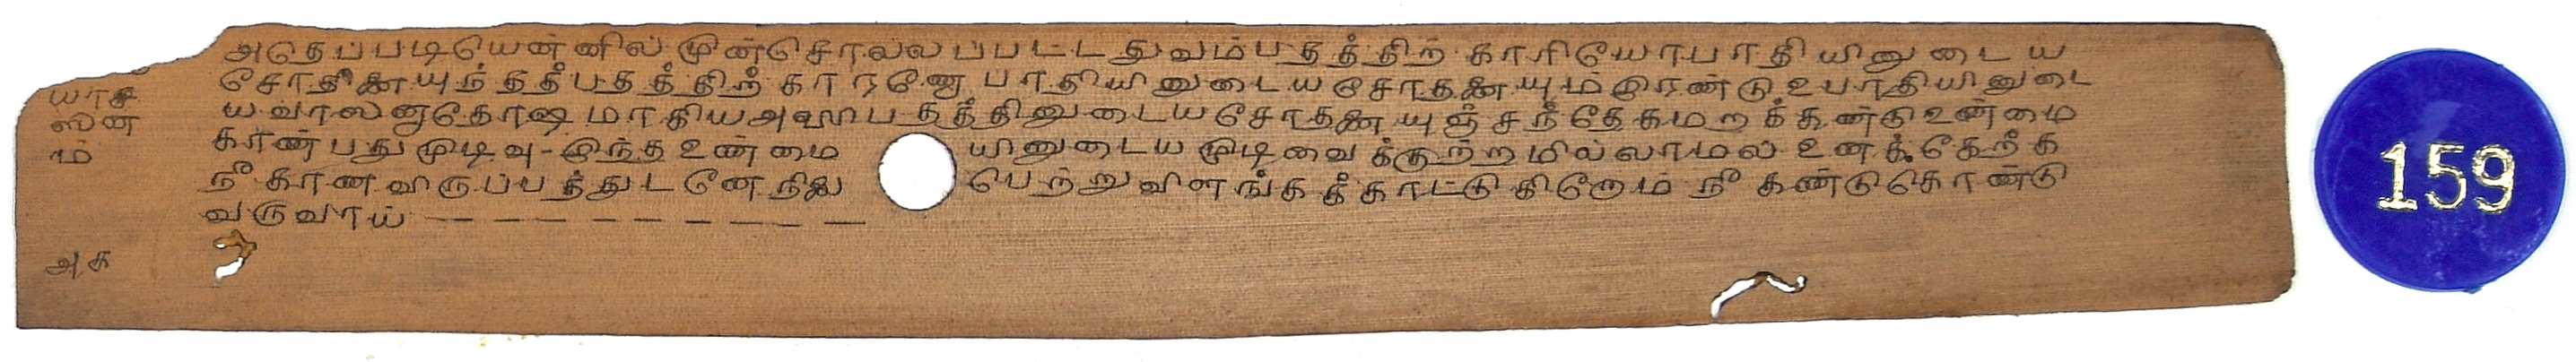 அதெப்படியென்னில் முன்சொல்லப்பட்ட துவம்பதத்திற் காரியோபாதியினுடைய
சோதினையுந் தத்பதத்திற் காரணோபாதியினுடைய சோதனையும் இரண்டு உபாதியினுடை
ய வாஸனாதோஷமாகிய அஹிபதத்தினுடைய சோதனையுஞ் சந்தேகமறக்கண்டு உண்மை
காண்பது முடிவு - இந்த உண்மை யினுடைய முடிவை க்குற்றமில்லாமல் உனக்கேற்க
நீ காண விருப்பத்துடனே நிலை பெற்று விளங்கக் காட்டுகிறோம் நீ கண்டுகொண்டு
வருவாய் — — — — — — — — —
யாசி
ஸன
ம்
அக
159